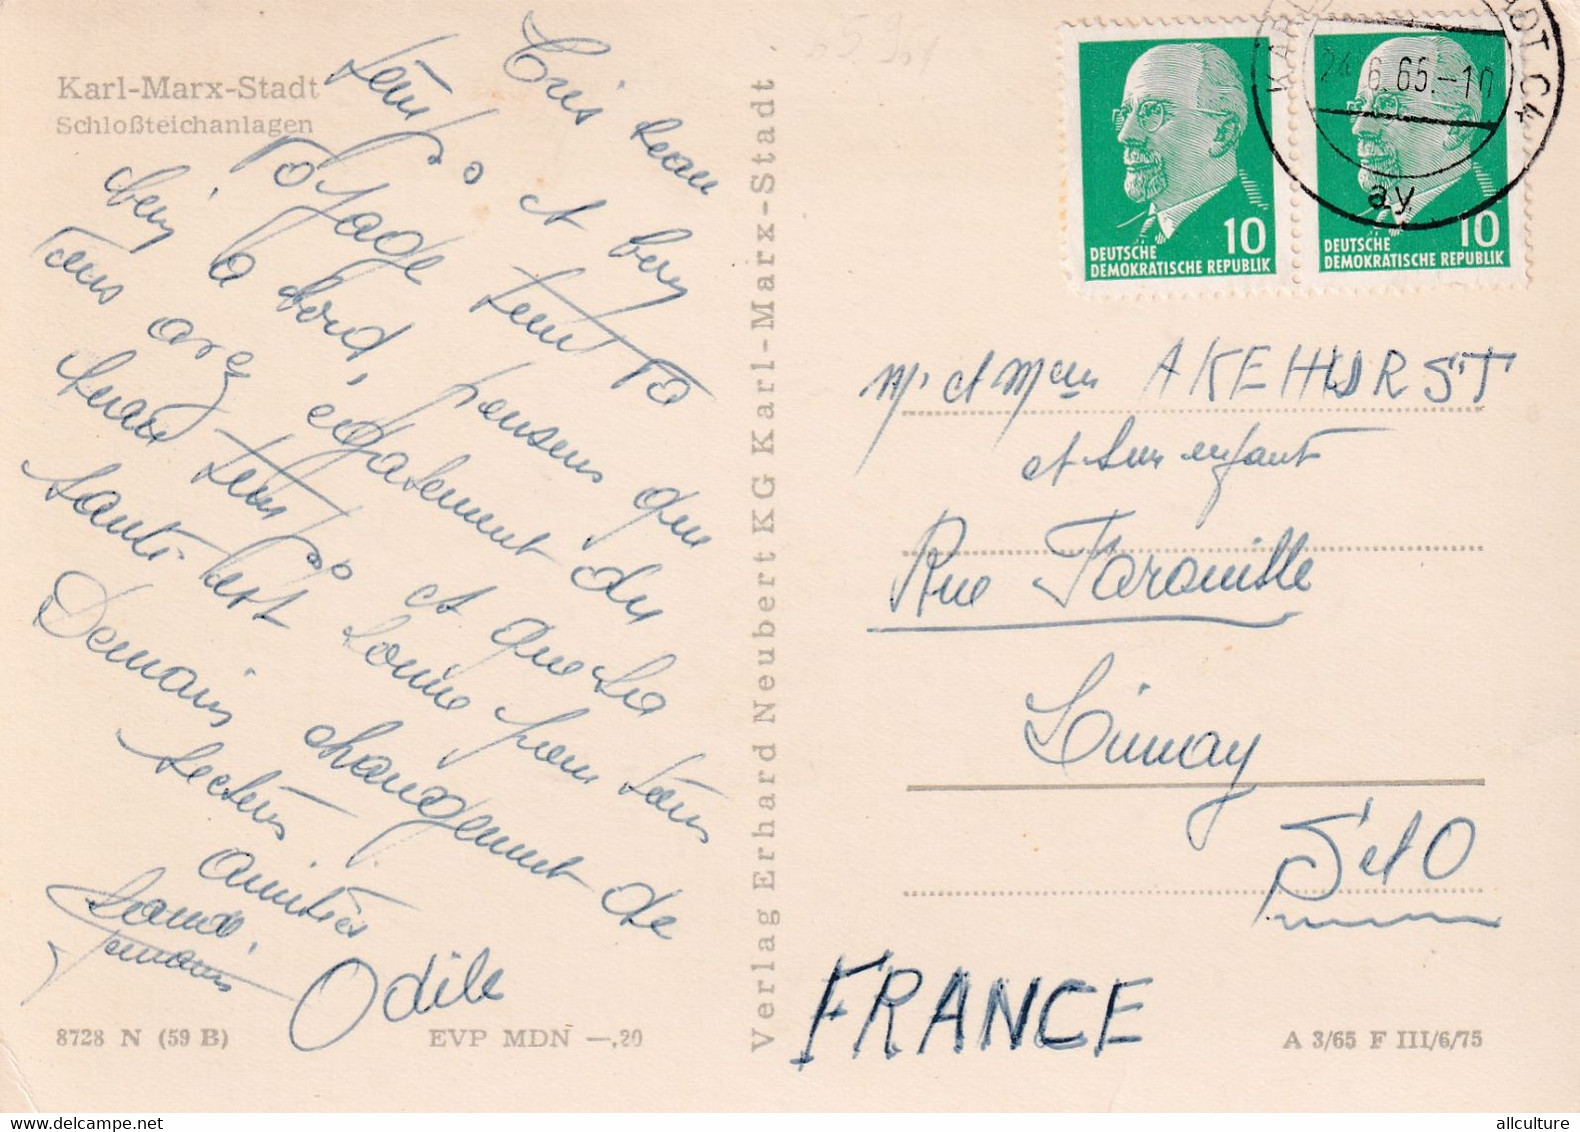 Karl-Marx-Stadt
Schloßteichanlagen
Très beau
temps et bon
voyage
bien à bord, pensons que
vous avez également du
beau temps et que la
santé est bonne pour tous
Demain changement de
secteur
Amitiés
Odile
8728 N (59 B)
EVP MDN —,20
Verlag Erhard Neubert KG Karl-Marx-Stadt
10
DEUTSCHE
DEMOKRATISCHE REPUBLIK
10
DEUTSCHE
DEMOKRATISCHE REPUBLIK
24.6.65.-10
ay
Mr et Mme AKEHURST
et leur enfant
Rue
Limay
S et O
FRANCE
A 3/65 F III/6/75
allculture